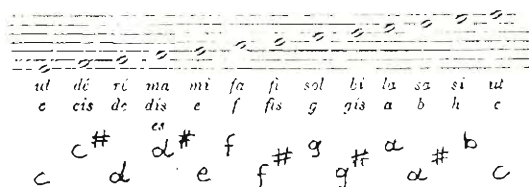 ut dé ré ma mi fa fi sol bi la sa si ut
c cis de dis e f fis g gis a b h c
es
c c# d d# e f f# g g# a a# b c